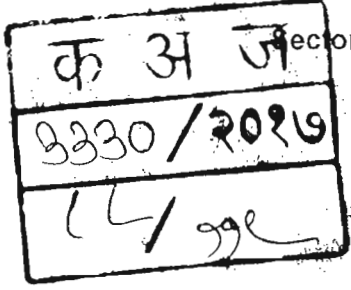 क अ ज ector
३३३०/२०१७